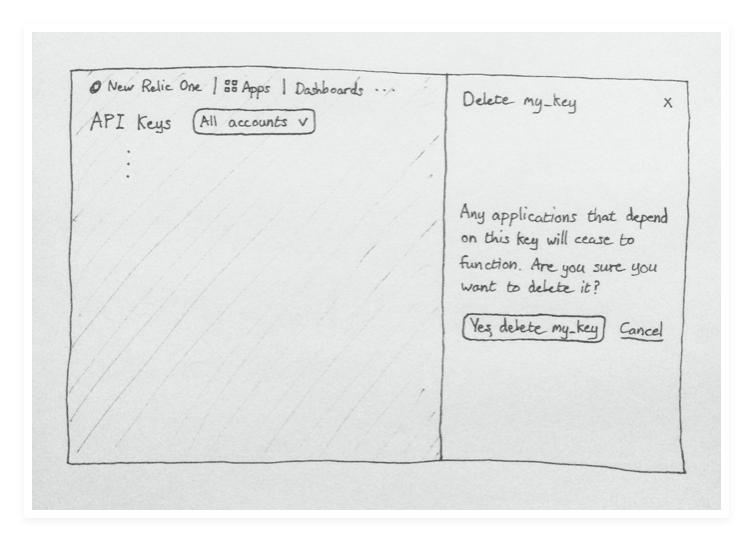 New Relic One | Apps | Dashboards ...
API Keys All accounts v
Delete my_key x
Any applications that depend
on this key will cease to
function. Are you sure you
want to delete it?
Yes, delete my_key Cancel